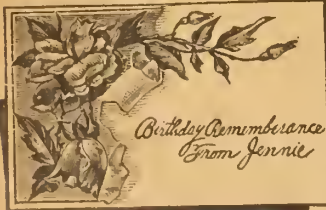 Birthday Rememberance
From Jennie